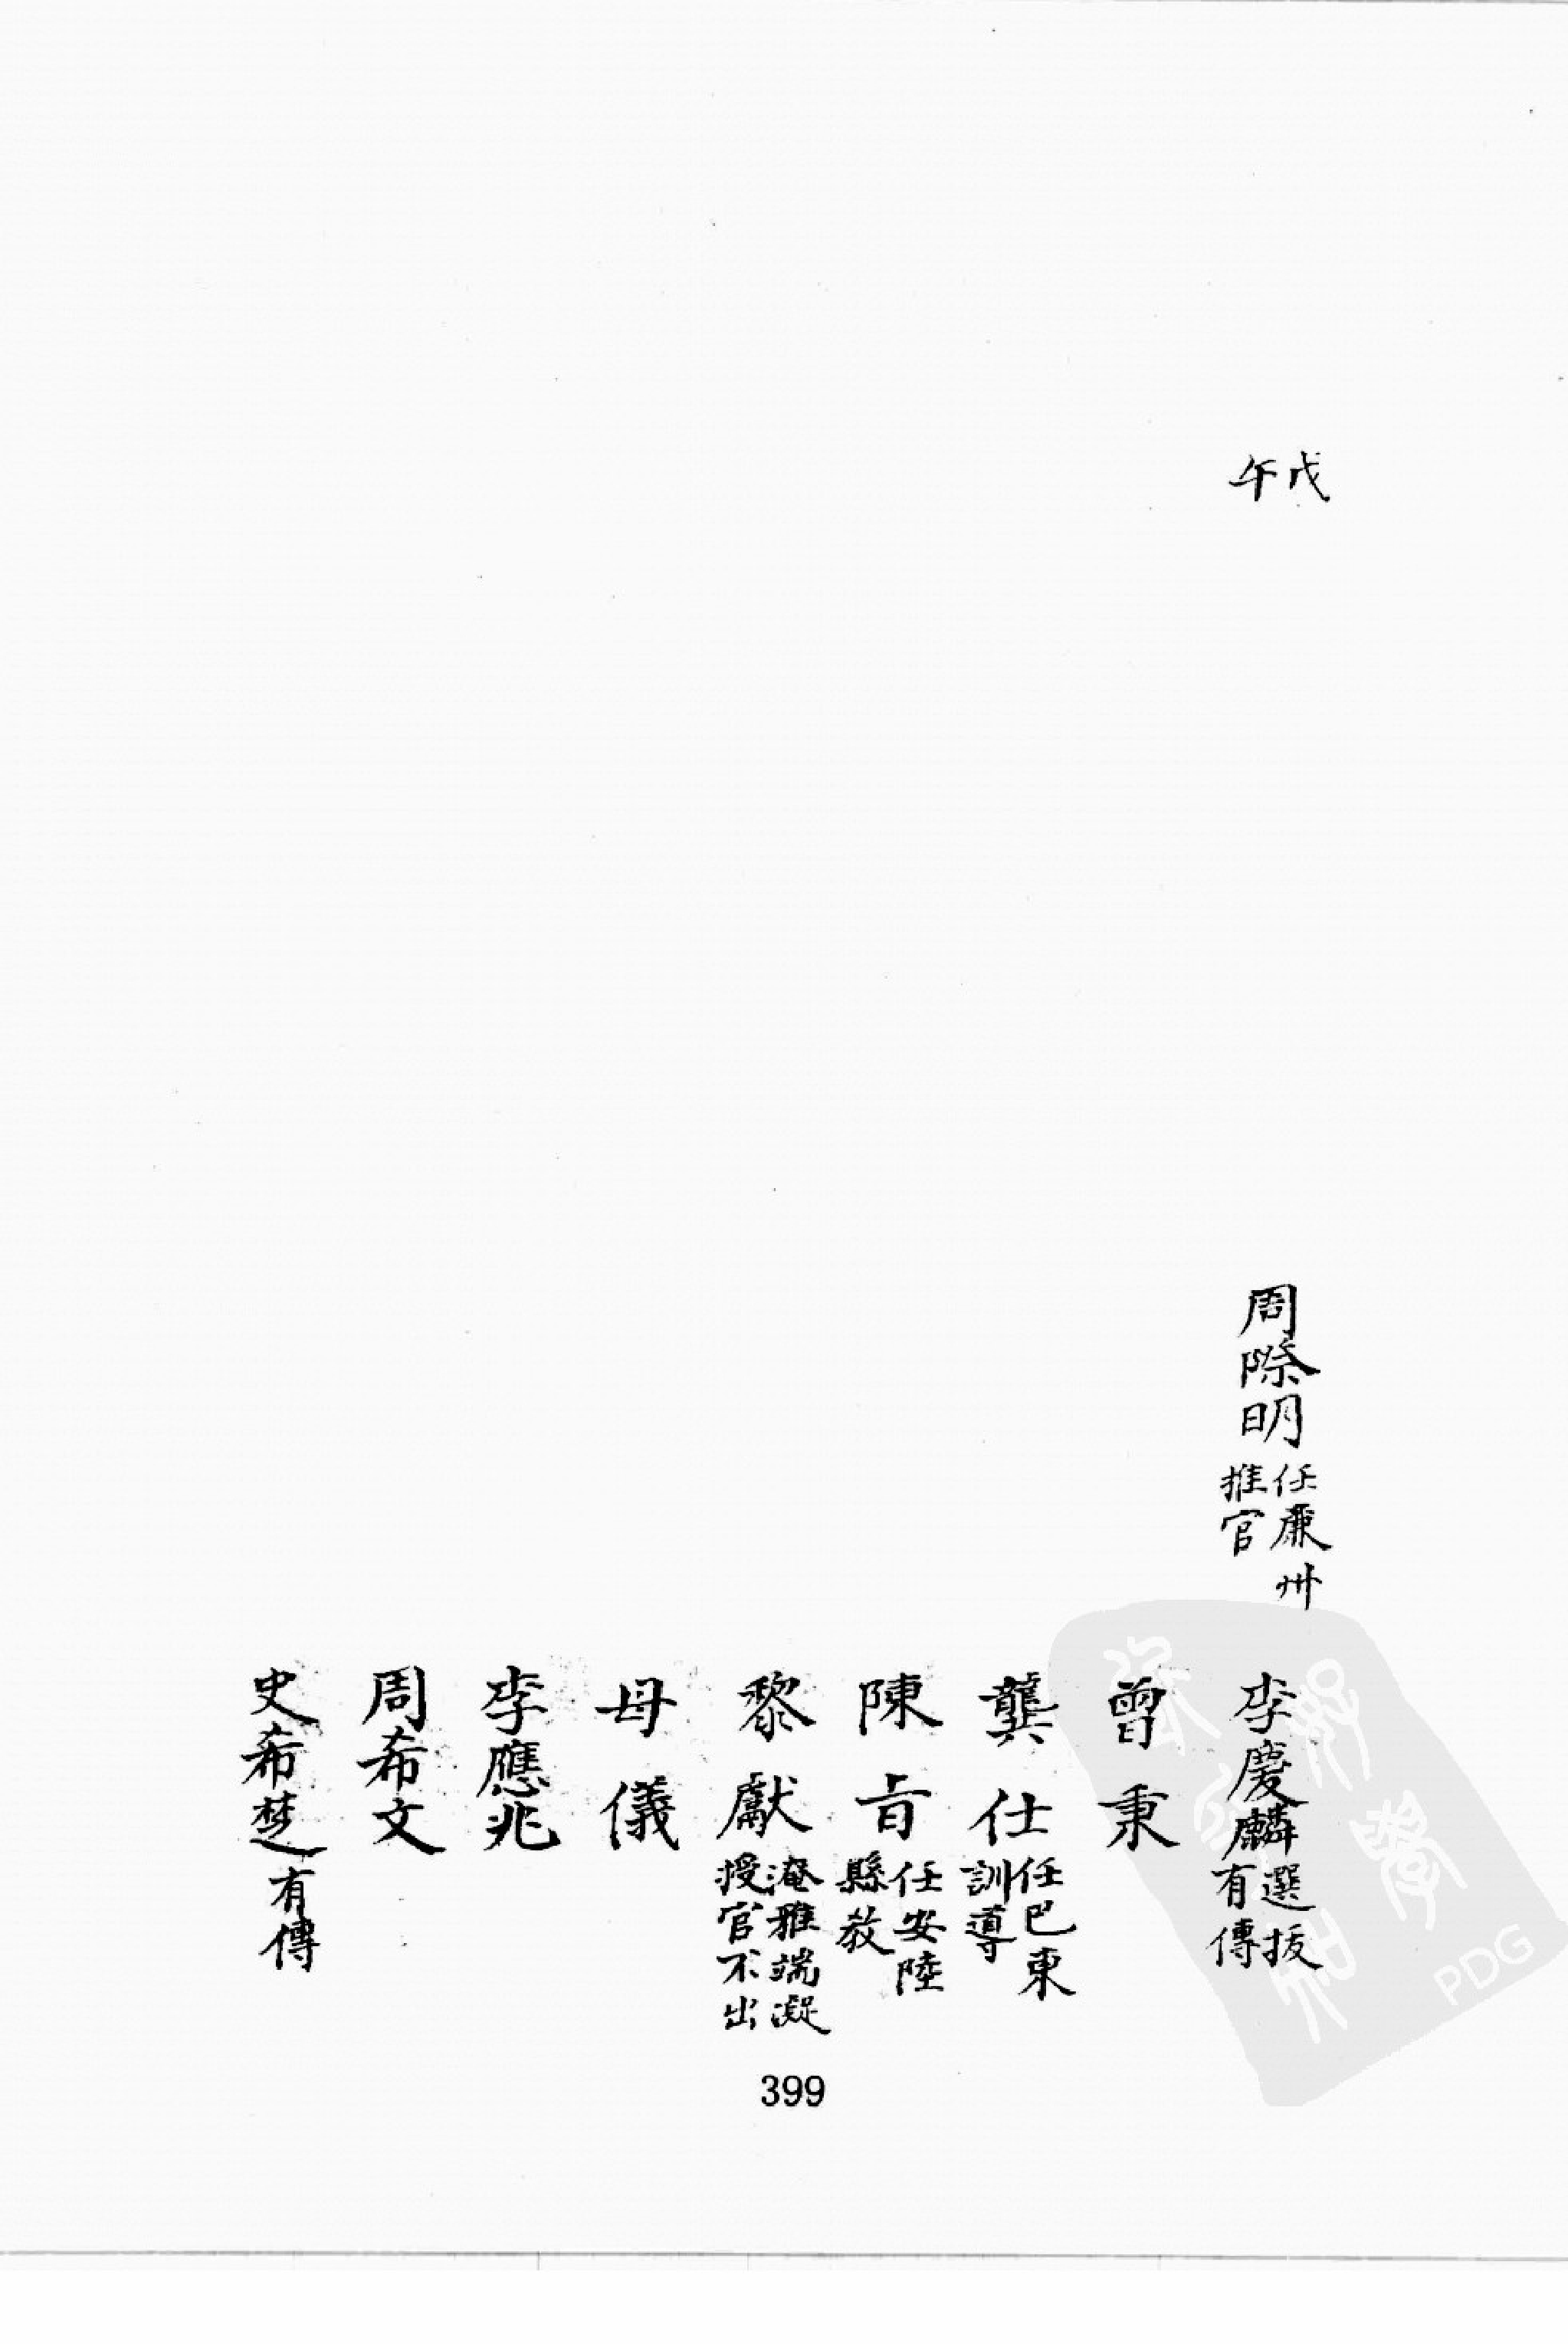 戊午
周際明任廉州推官
李慶麟選拔有傳
曾秉
龔仕任巴東訓導
陳㫖任安陸縣教
黎獻淹雅端凝授官不出
母儀
李應兆
周希文
史希楚有傳
399
PDG